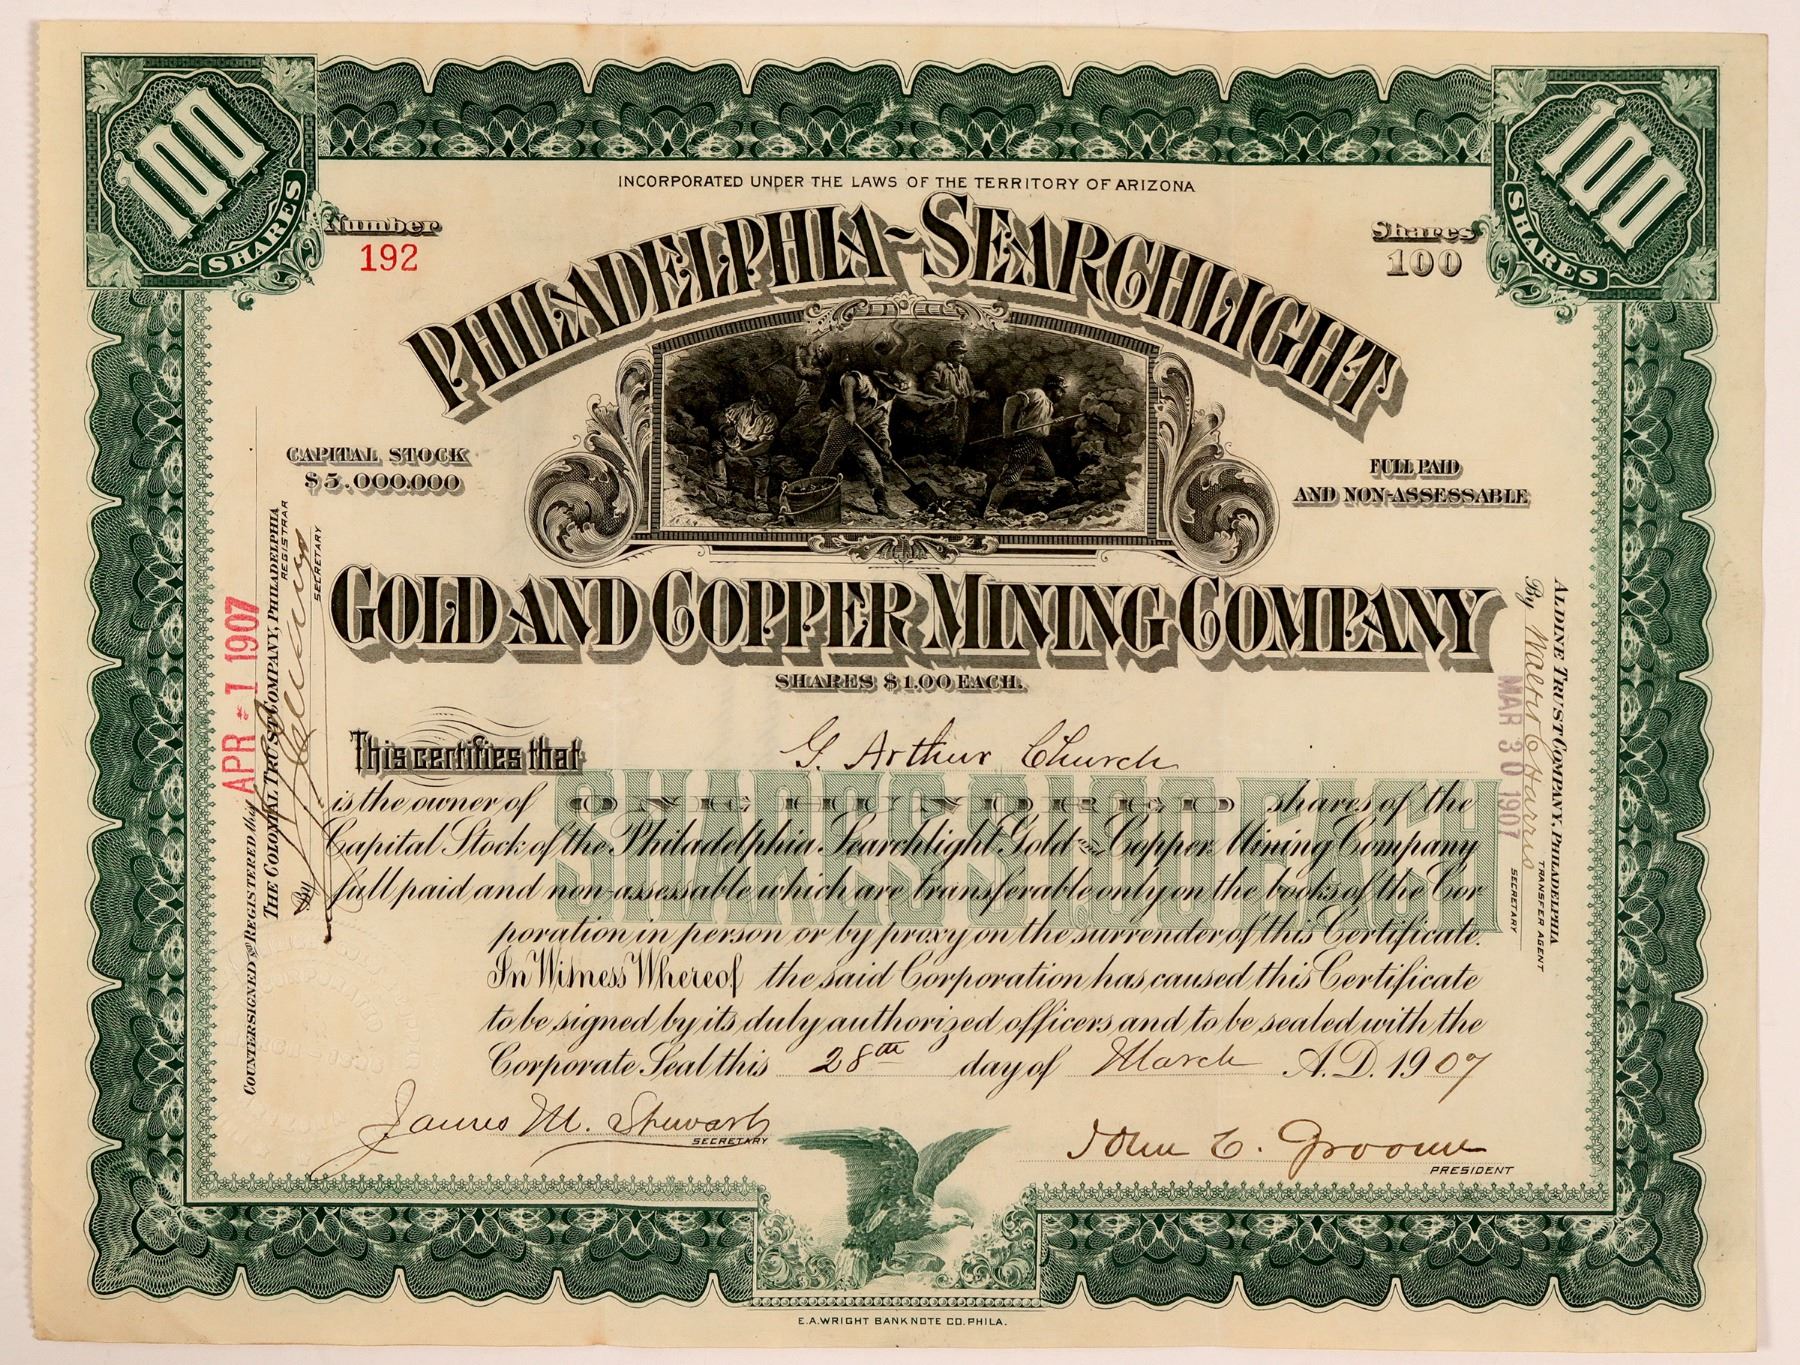 100
SHARES
100
SHARES
INCORPORATED UNDER THE LAWS OF THE TERRITORY OF ARIZONA
Number
192
Shares
100
PHILADELPHIA-SEARCHLIGHT
CAPITAL STOCK
$5,000.000
FULL PAID
AND NON-ASSESSABLE
GOLD AND COPPER MINING COMPANY
SHARES $1.00 EACH.
This certifies that G. Arthur Church
is the owner of ONE HUNDRED shares of the
Capital Stock of the Philadelphia Searchlight Gold and Copper Mining Company
full paid and non-assessable which are transferable only on the books of the Cor
poration in person or by proxy on the surrender of this Certificate.
In Witness Whereof the said Corporation has caused this Certificate
to be signed by its duly authorized officers and to be sealed with the
Corporate Seal this 28th day of March A.D. 1907
SHARES $1.00 EACH
James M. Stewart
SECRETARY
John C. Groome
PRESIDENT
APR - 1 1907
COUNTERSIGNED and REGISTERED this
THE COLONIAL TRUST COMPANY, PHILADELPHIA
REGISTRAR
By
SECRETARY
ALDINE TRUST COMPANY, PHILADELPHIA
TRANSFER AGENT
By Walter C Harris
SECRETARY
MAR 30 1907
E.A.WRIGHT BANK NOTE CO. PHILA.